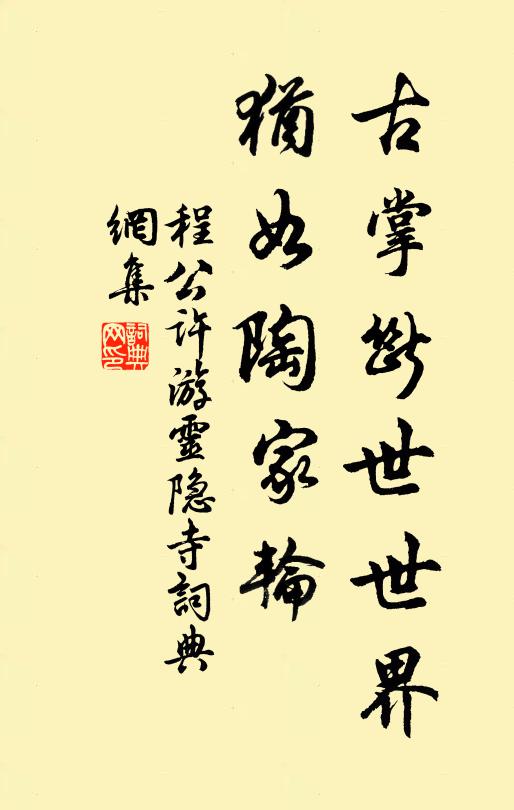 古掌断世世界
猶如陶家輪
程公许游靈隐寺詞典
網集
詞典網印